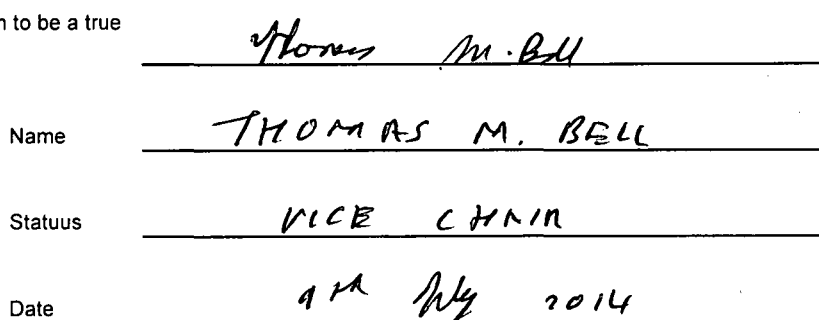 n to be a true
Thomas M. Bell
Name THOMAS M. BELL
Statuus VICE CHAIR
Date 9th July 2014